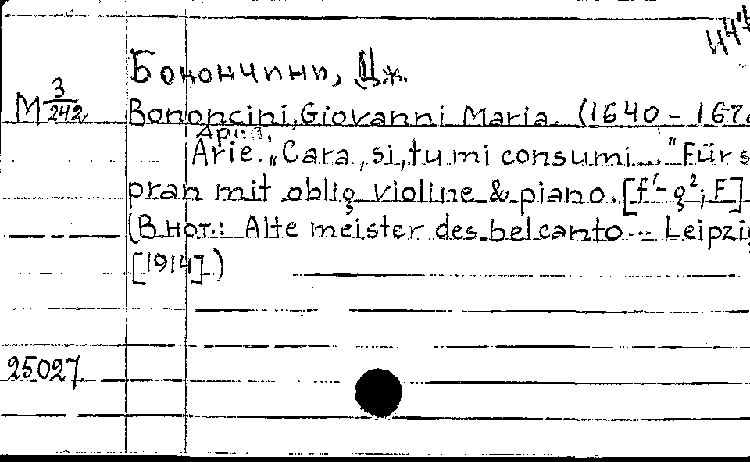 444
Бонончини, Дж.
М 3/242
Bononcini, Giovanni Maria. (1640 - 167
Ария.
Arie. „Cara, si, tu mi consumi...." Für s
pran mit oblig violine & piano. [f'-g²; F]
(В нот.: Alte meister des belcanto... Leipzig
[1914].)
25027.